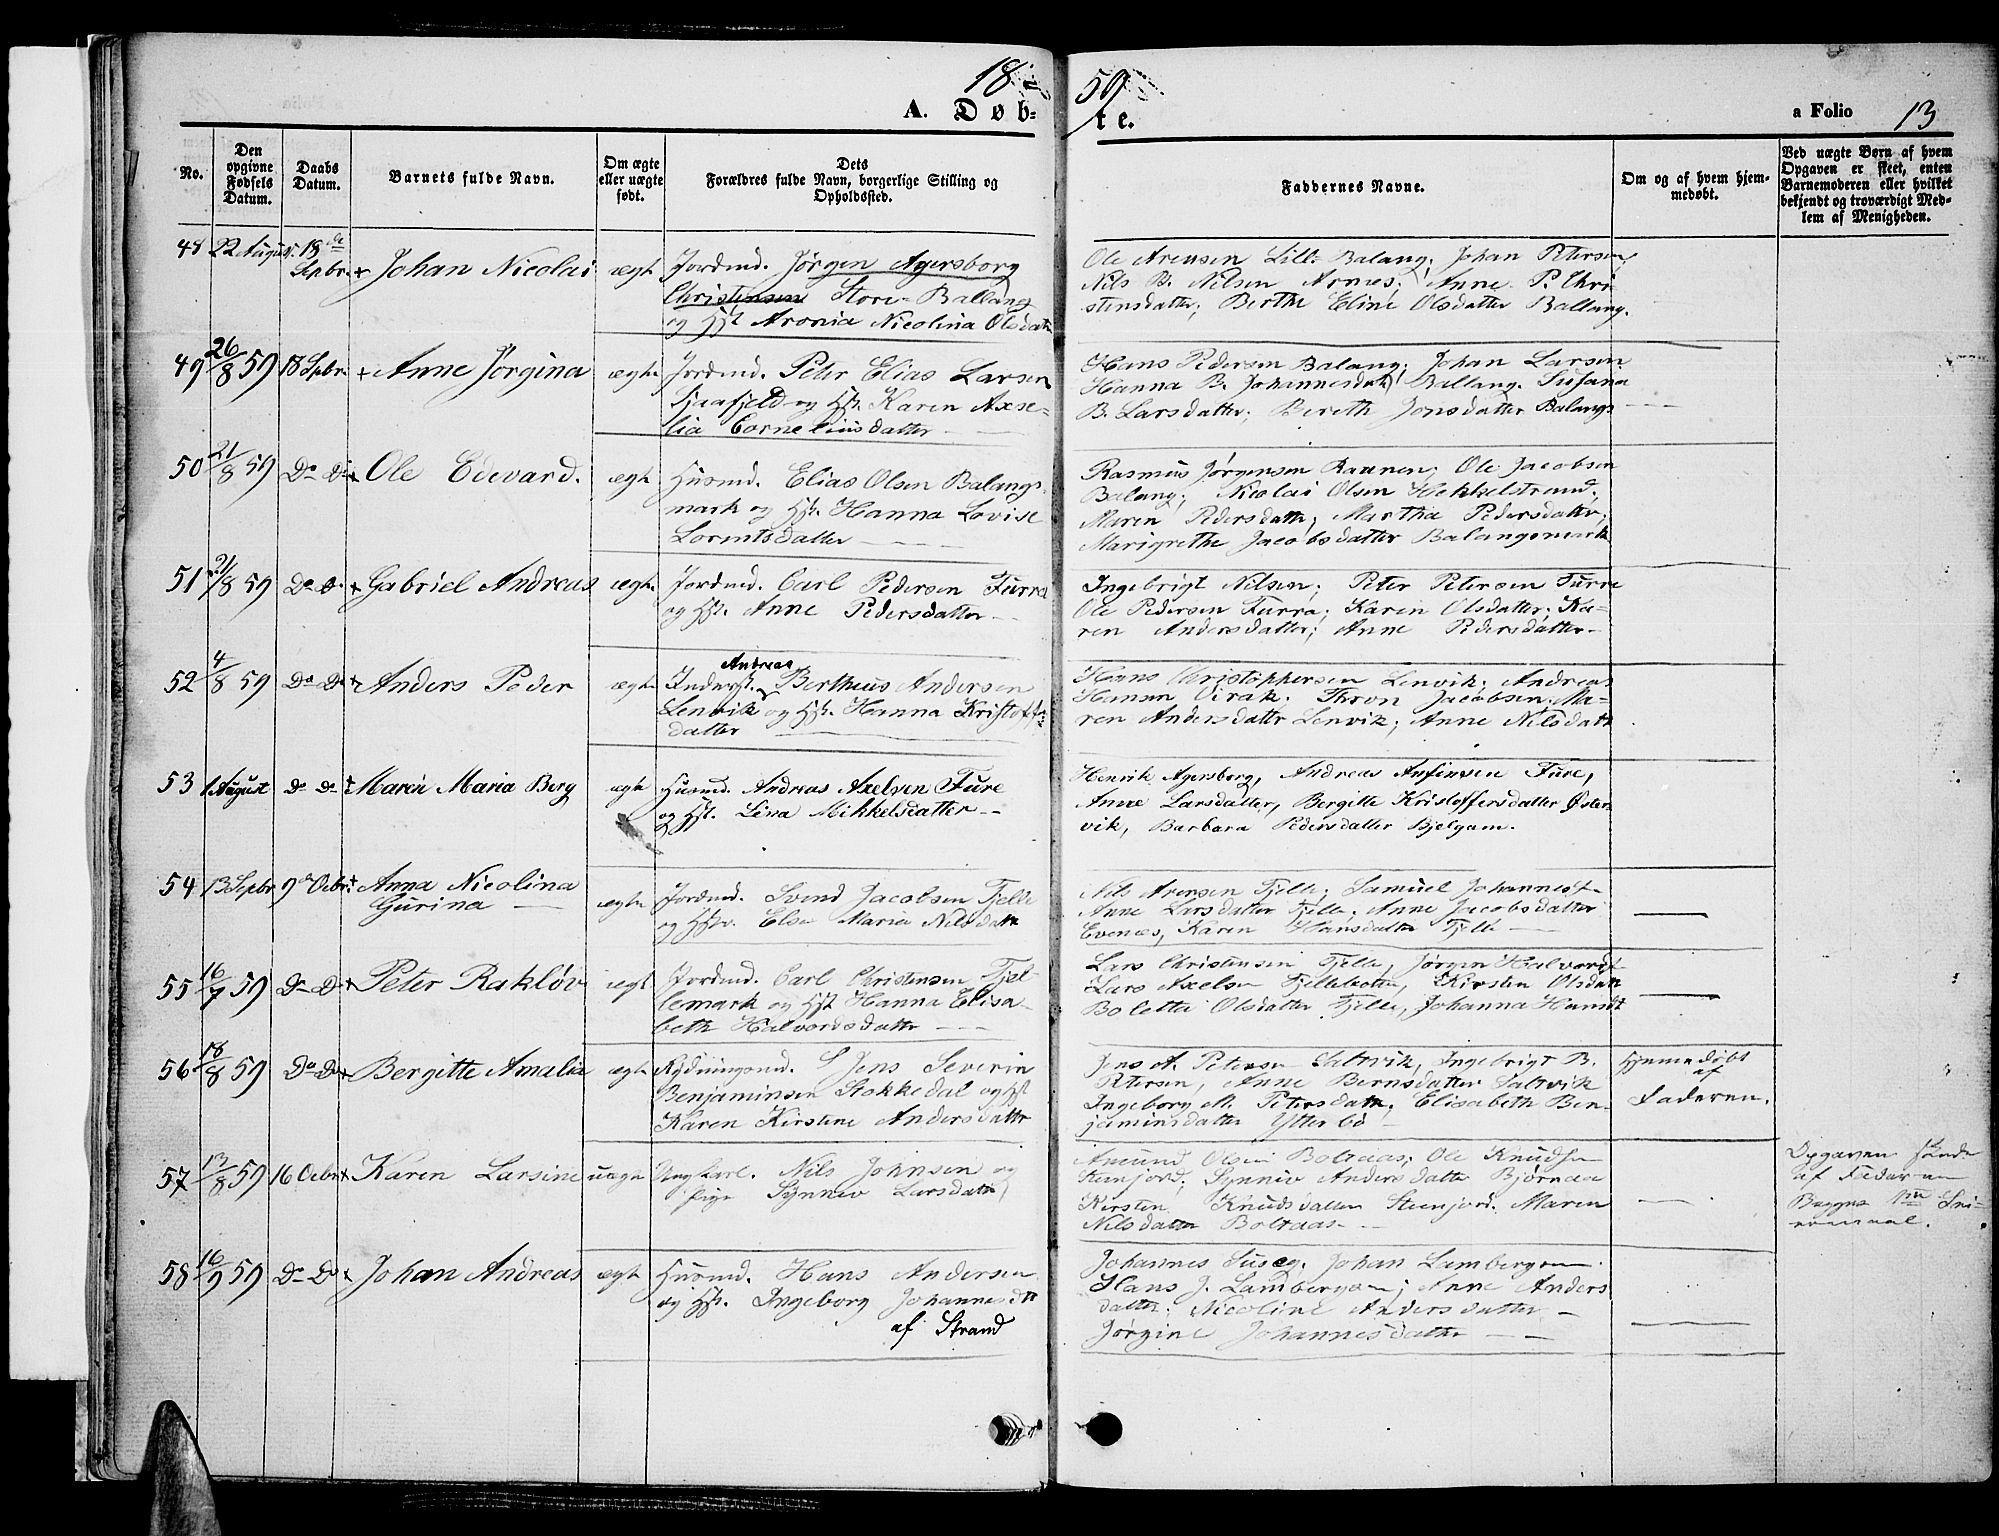 1859
A. Døbte.
a Folio 13
No.
Den opgivne Fødsels Datum.
Daabs Datum.
Barnets fulde Navn.
Om ægte eller uægte født.
Dets Forældres fulde Navn, borgerlige Stilling og Opholdssted.
Faddernes Navne.
Om og af hvem hjemmedøbt.
Ved uægte Børn af hvem Opgaven er skeet, enten Barnemoderen eller hvilket bekjendt og troværdigt Medlem af Menigheden.
48 22 August 18de Sepbr. + Johan Nicolai ægte
Jordmd. Jørgen Agersborg
Christensen Store-Ballang
og Hst Aronia Nicolina Olsdatr
Ole Arensen Lill-Balang, Johan Petersen,
Nils B. Nilsen Arnes; Anne P. Chri
stensdatter; Berthe Eline Olsdatter Ballang.
49 26/8 59 18 Sepbr. + Anne Jørgina ægte
Jordmd. Peter Elias Larsen
Sjaafjeld og Hst. Karen Axse-
lia Corneliusdatter
Hans Pedersen Balang; Johan Larsen
Hanna B. Johannesdatr Ballang. Susana
B. Larsdatter; Bereth Jonsdatter Balangs
50 21/8 59 Do Do + Ole Edevard. ægte
Husmd. Elias Olsen Balangs-
mark og Hst. Hanna Lovise
Lorentsdatter
Rasmus Jørgensen Rannen; Ole Jacobsen
Balang; Nicolai Olsen Hekkelstrand;
Maren Pedersdattr; Martha Pedersdatter;
Marigrethe Jacobsdatter Balangsmark
51 21/8 59 Do Do + Gabriel Andreas ægte
Jordmd. Carl Pedersen Furra
og Hst. Anne Pedersdatter
Ingebrigt Nilsen; Peter Petersen Furre
Ole Pedersen Furra; Karen Olsdatter; Ka-
ren Andersdatter; Anne Pedersdatter
52 4/8 59 Do Do + Anders Peder ægte
Andreas
Inderst. Bertheus Andersen
Lenvik og Hst. Hanna Kristoffer
datter
Hans Christophersen Lenvik; Andreas
Hansen Virak. Thron Jacobsen; Ma-
ren Andersdattr Lenvik; Anne Nilsdatr
53 1 August Do Do + Maren Maria Berg ægte
Husmd. Andreas Axelsen Fure
og Hst. Lina Mikkelsdatter
Henrik Agersborg, Andreas Anfinsen Fure,
Anne Larsdatter, Bergitte Kristoffersdatter Øster
vik, Barbara Pedersdatter Bjelgam.
54 13 Sepbr 9de Octbr + Anna Nicolina
Gurina ægte
Jordmd. Svend Jacobsen Fjelle
og Hstr. Else Maria Nilsdatr
Nils Arensen Fjelle; Samuel Johannes
Anne Larsdatter Fjelle; Anne Jacobsdatter
Evenæs, Karen Hansdatter Fjelle
55 16/7 59 Do Do + Peter Rakløv ægte
Jordmd. Carl Christensen Fjel-
lemark og Hst Hanna Elisa-
beth Halvordsdattr
Lars Christensen Fjelle, Jørgen Halvords
Lars Axelsen Fjellebotn, Kirsten Olsdatr
Boletta Olsdatter Fjelle, Johanna Hansdt
56 18/8 59 Do Do + Bergitte Amalia ægte
Rydningsmd. Jens Severin
Benjaminsen Stokkedal og Hst
Karen Kirstine Andersdattr
Jens A. Petersen Saltvik, Ingebrigt B.
Petersen, Anne Berntsdatter Saltvik
Ingeborg M. Petersdatr, Elisabeth Ben-
jaminsdatter Ytterbø
Hjemmedøbt
af
Faderen.
57 13/8 59 16 Octbr + Karen Larsine uægte
Ungkarl. Nils Johnsen og
pige Synnøv Larsdattr
Amund Olsen Boltaas; Ole Knudsen
Steinjord; Synniv Andersdatter Bjørnaa
Kersten Knudsdatter Steenjord. Maren
Nilsdatter Boltaas
Opgaven skede
af Faderen
58 16/9 59 Do Do + Johan Andreas ægte
Husmd. Hans Andersen
og Hst. Ingeborg Johannesdtr
af Strand
Johannes Suseg, Johan Lambergsen
Hans J. Lambergsen; Anne Anders
datter; Nicoline Andersdatter
Jørgine Johannesdatter